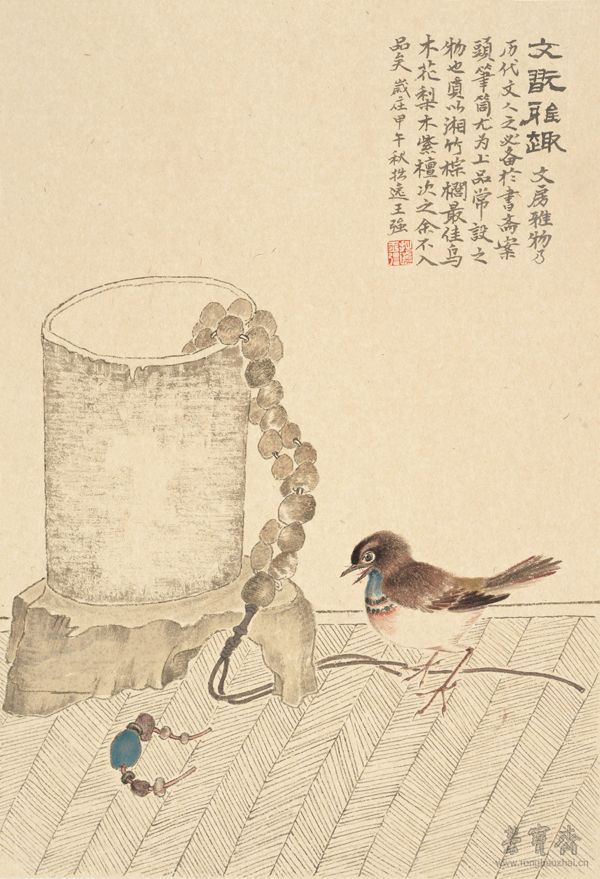 文翫雅趣 文房雅物乃
历代文人之必备於書斋案
頭筆筒尤为上品常設之
物也質以湘竹棕櫚最佳乌
木花梨木紫檀次之余不入
品矣 歲在甲午秋拙逸王强
榮寶齋
www.rongbaozhai.cn